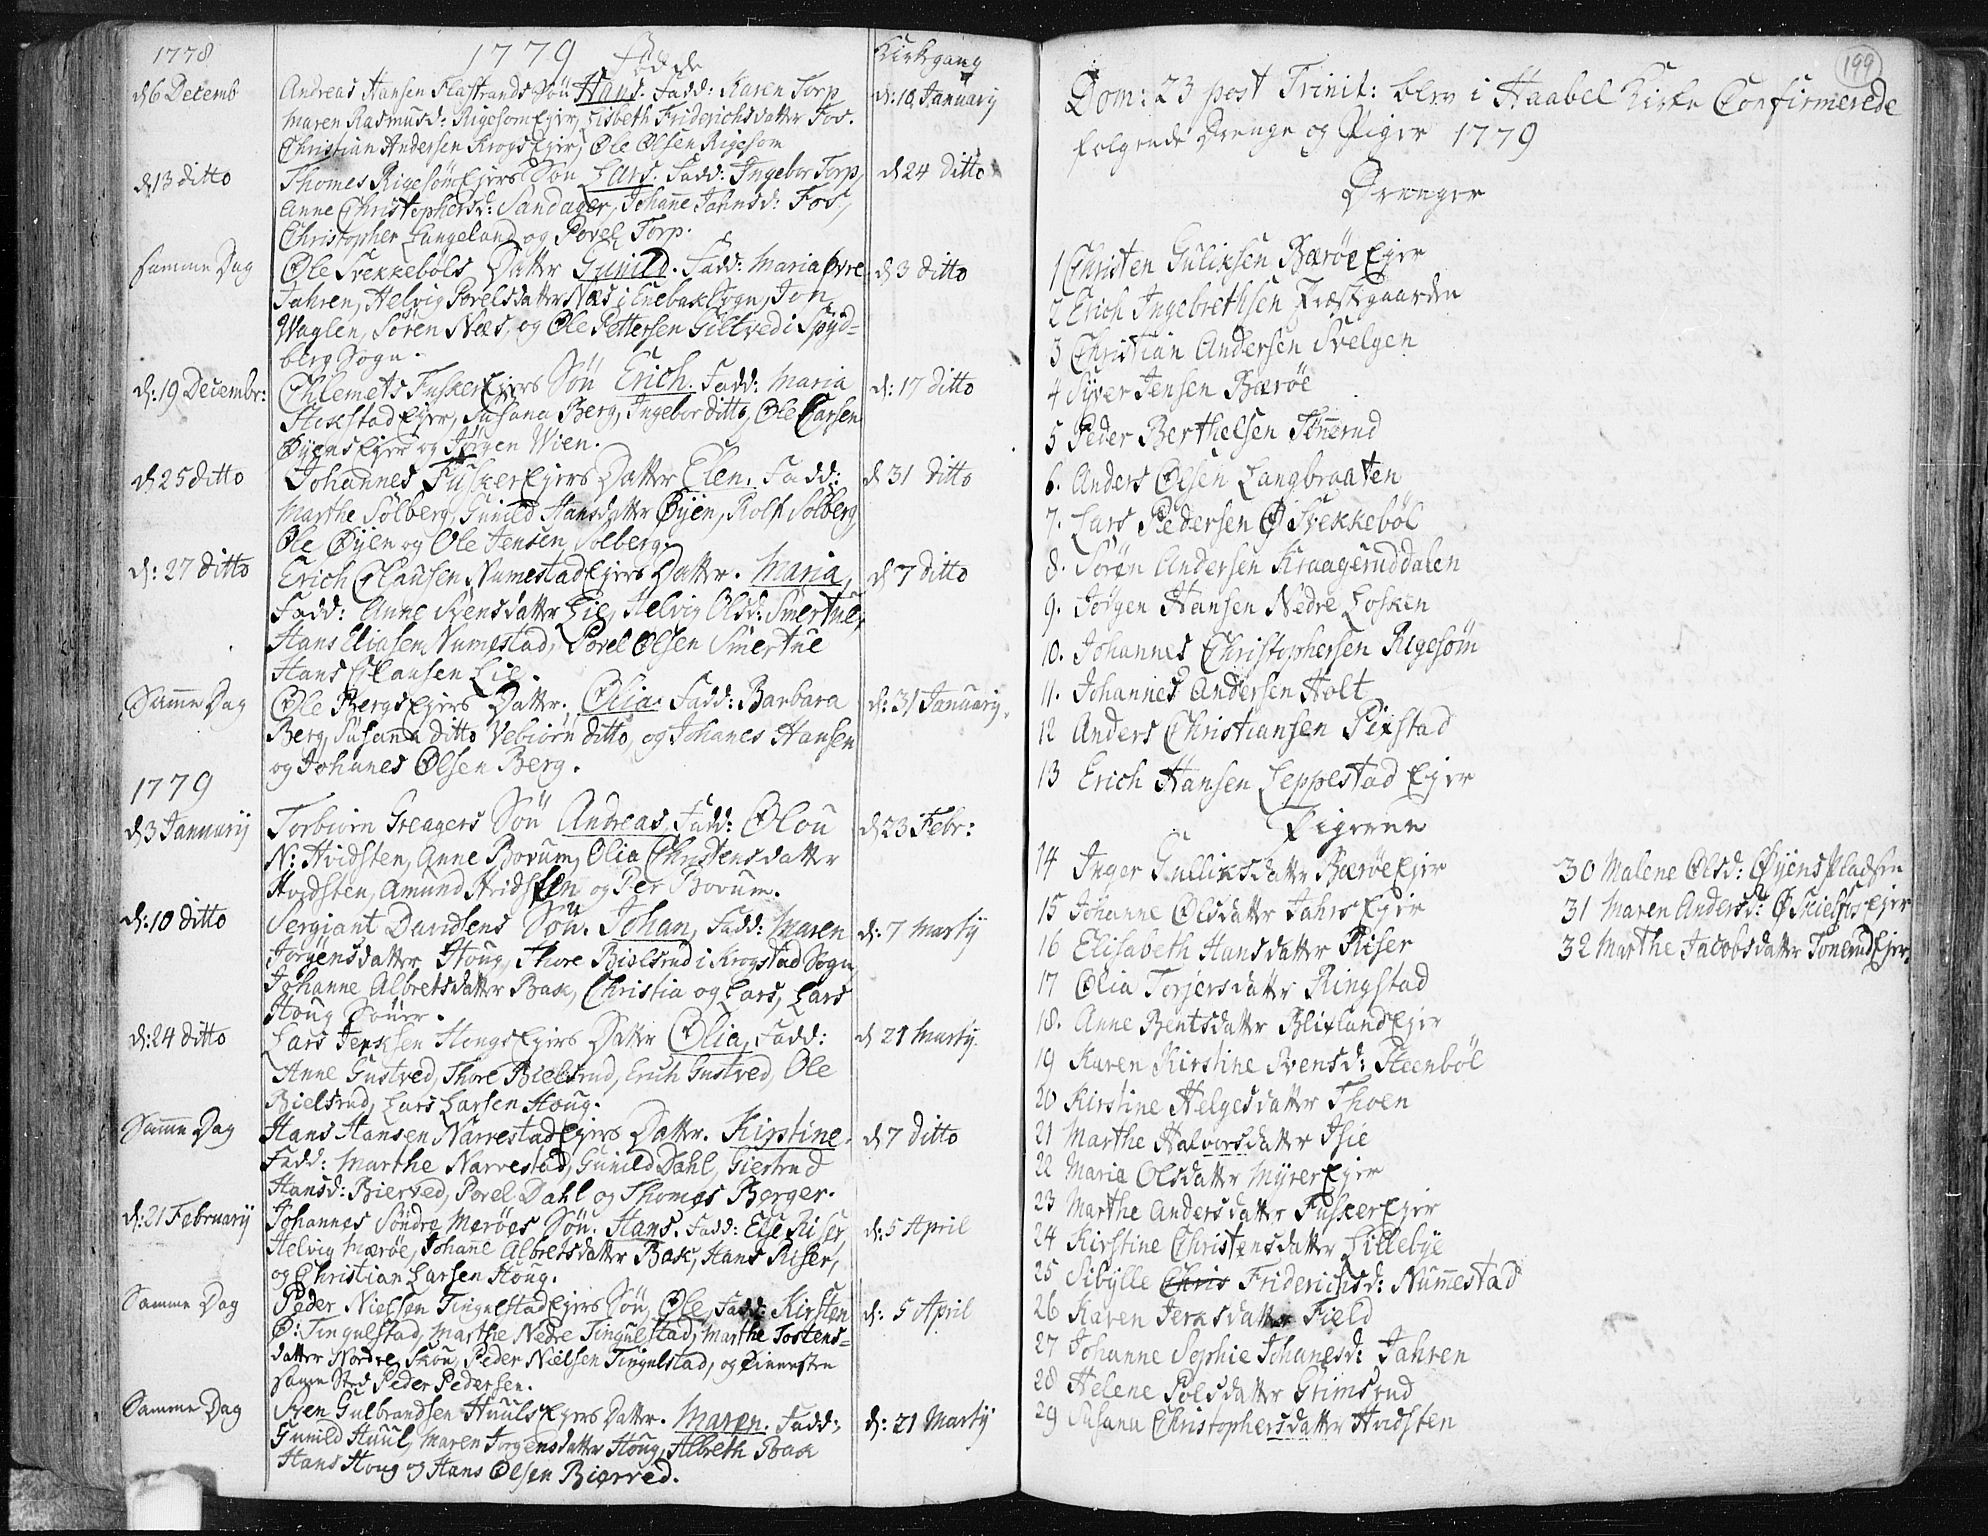 1778
1779 Fødde
Kirkgang
d 6 Decemb
Andreas Hansen Flastrands Sön Hans. Fadd: Karen Torp
d: 10 January
Maren Rasmusd: RigesomEjer, Lisbeth Friderichsdatter Fos.
Christian Andersen KrogsEjer, Ole Olsen Rigesom
d 13 ditto
Thomes RigesömEjers Sön Lars. Fadd: Ingebor Torp,
d 24 ditto
Anne Christophersd: Sandager, Johanne Jannsd: Fos,
Christopher Langeland og Povel Torp.
samme Dag
Ole Svekkebøls Datter Gunild. Fadd: Maria Øvre
d 3 ditto
Jahren, Helvig Povelsdatter Næs i Enebak Sogn, Jon
Waglen, Sören Næs, og Ole Pettersen Gilltved i Spyd-
berg Sogn.
d: 19 Decembr:
Chlemets FuskerEjers Sön Erich. Fadd: Maria
d: 17 ditto
StokstadEjer, Susana Berg, Ingebor ditto, Ole Larsen
ØyensEjer og Jörgen Wien.
d 25 ditto
Johannes FuskerEjers Datter Elen. Fadd:
d 31 ditto
Marthe Solberg, Gunild Hansdatter Øyen, Rolf Solberg
Ole Øyen og Ole Jensen Solberg.
d: 27 ditto
Erich Clausen NumestadEjers Datter. Maria,
d 7 ditto
Fadd: Anne Svensdatter Lie, Helvig Olsd: Smertue,
Hans Eliasen Numestad, Povel Olsen Smertue
Hans Clausen Lie.
Samme Dag
Ole BergsEjers Datter. Olia. Fadd: Barbara
d: 31 January.
Berg, Susanna ditto Vebiørn ditto, og Johanes Hansen
og Johanes Olsen Berg.
1779
d 3 Januarij
Torbiörn Greagers Sön Andreas Fadd: Olou
d 23 Febr:
N: Hvidsten, Anne Bovum, Olia Christensdatter
Hvidsten, Amund Hvidsten og Per Bovum.
d: 10 ditto
Sergiant Davidsens Sön. Johan, Fadd: Maren
d: 7 Martij
Jörgensdatter Houg, Thore Bielsrud i Krogstad Sogn,
Johanne Albretsdatter Bak, Christia og Lars, Lars
Houg Sönner.
d: 24 ditto
Lars Jenksen HougsEjers Datter Olia, Fadd:
d 21 Martij
Anne Gustved, Thore Bielsrud, Erich Gustved, Ole
Bielsrud, Lars Larsen Houg.
Samme Dag
Hans Hansen NarvestadEjers Datter. Kirstine.
d 7 ditto
Fadd: Marthe Narvestad, Gunild Dahl, Giertrud
Hansd: Bierved, Povel Dahl og Thomas Berger.
d: 21 Februarij
Johannes Söndre Mæröes Sön. Hans. Fadd: Else Riser
d: 5 April
Helvig Mæröe, Johane Albretsdatter Bak, Hans Riser,
og Christian Larsen Houg.
Samme Dag
Peder Nielsen TingulstadEjers Sön, Ole, Fadd: Kirsten
d: 5 April
Ø: Tingulstad, Marthe Nedre Tingulstad, Marthe Tostens-
datter Nordre Skou, Peder Nielsen Tingulstad, og
samme Sted Peder Pedersen.
Samme Dag
Sven Gulbrandsen HuulsEjers Datter. Maren. Fadd:
d: 21 Martij
Gunild Huul, Maren Jorgensdatter Houg, Albreth Baak
Hans Houg og Hans Olsen Bierved.
199
Dom: 23 post Trinit: blev i Haabel Kirke Confirmerede
følgende Drenge og Piger 1779
Drenger
1 Christen Guliksen BæröeEjer
2 Erich Ingebrethsen Præstgaarden
3 Christian Andersen Svelgen
4 Syver Jensen Bæröe
5 Peder Berthelsen Tönerud
6. Anders Olsen Langbraaten
7. Lars Pedersen Ø Svekkebøl
8. Sören Andersen Kraageruddalen
9. Jörgen Hansen Nedre Losken
10. Johannes Christophersen Rigesöm
11. Johannes Andersen Holt
12 Anders Christiansen Pixstad
13 Erich Hansen LeppestadEjer
Pigerne
14 Inger Gulliksdatter BæröeEjer
15 Johanne Olsdatter JahrsEjer
16 Elisabeth Hansdatter Riser
17 Olia Torjersdatter Ringstad
18. Anne Bentsdatter BlixlandEjer
19 Karen Kirstine Svensd: Steenböl
20 Kirstine Helgesdatter Thoen
21 Marthe Halvorsdatter Thie
22 Maria Olsdatter MyrerEjer
23 Marthe Andersdatter FuskerEjer
24 Kirstine Christensdatter Lillebye
25 Sibylle Chris Friderichsd: Nummestad
26 Karen Jeraksdatter Field
27 Johanne Sophie Johanesd: Jahren
28 Helene Polsdatter Grimsrud
29 Susana Christophersdatter Hvidsten
30 Malene Olsd: ØyensPladsen
31 Maren Andersd: Ø SkielfosEjer
32 Marthe Jacobsdatter TonerudEjer.